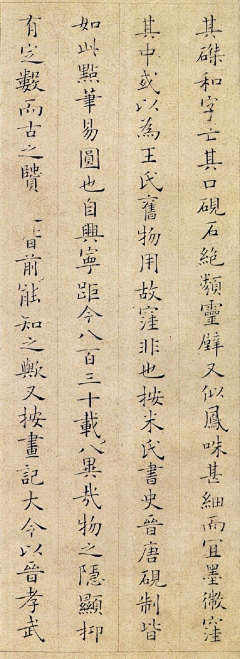 其磔和字亡其口硯石絶類靈壁又似鳳咮甚細而宜墨微窪
其中或以為王氏舊物用故窪非也按米氏書史晉唐硯制皆
如此點筆易圓也自興寧距今八百三十載異哉物之隱顯抑
有定數而古之賢前能知之歟又按畫記大令以晉孝武